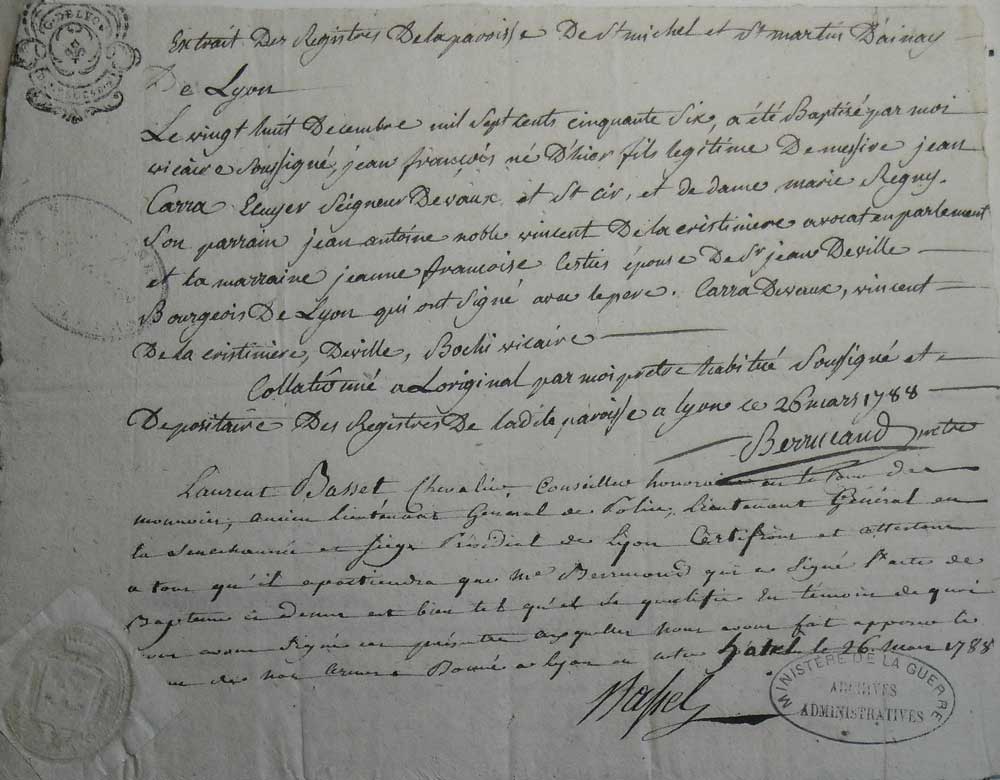 G. DE LYON
Extrait Des Registres De la paroisse De St michel et St martin D'ainay
De Lyon
Le vingt huit Decembre mil sept cents cinquante Six, a été Baptisé par moi
vicaire Soussigné, jean françois né D'hier fils legitime De messire jean
Carra Ecuyer Seigneur Devaux et St cir, et de dame marie Regny.
Son parrain jean antoine noble vincent De la cristiniere avocat en parlement
et la marraine jeanne francoise Cesties épouse De Sr jean Deville
Bourgeois De Lyon qui ont Signé avec le pere. Carra Devaux, vincent
De la cristiniere, Deville, Bochi vicaire
Collationné a Loriginal par moi pretre habitué Soussigné et
Depositaire Des Registres De ladite paroisse a lyon ce 26 mars 1788
Berrucand pretre
Laurent Basset Chevalier, Conseiller honoraire en la Cour des
monnoies, ancien Lieutenant General de Police, Lieutenant Général en
la Senechaussée et Siege Présidial de Lyon Certifions et attestons
a tous qu'il apartiendra que Me Berrucand qui a Signé l'acte de
Bapteme ci dessus est bien tel qu'il se qualifie En témoin de quoi
nous avons Signé ces présentes auxquelles nous avons fait apposer le
de nos armes Donné a lyon en notre hotel le 26 mars 1788
Basset
MINISTÈRE DE LA GUERRE
ARCHIVES
ADMINISTRATIVES